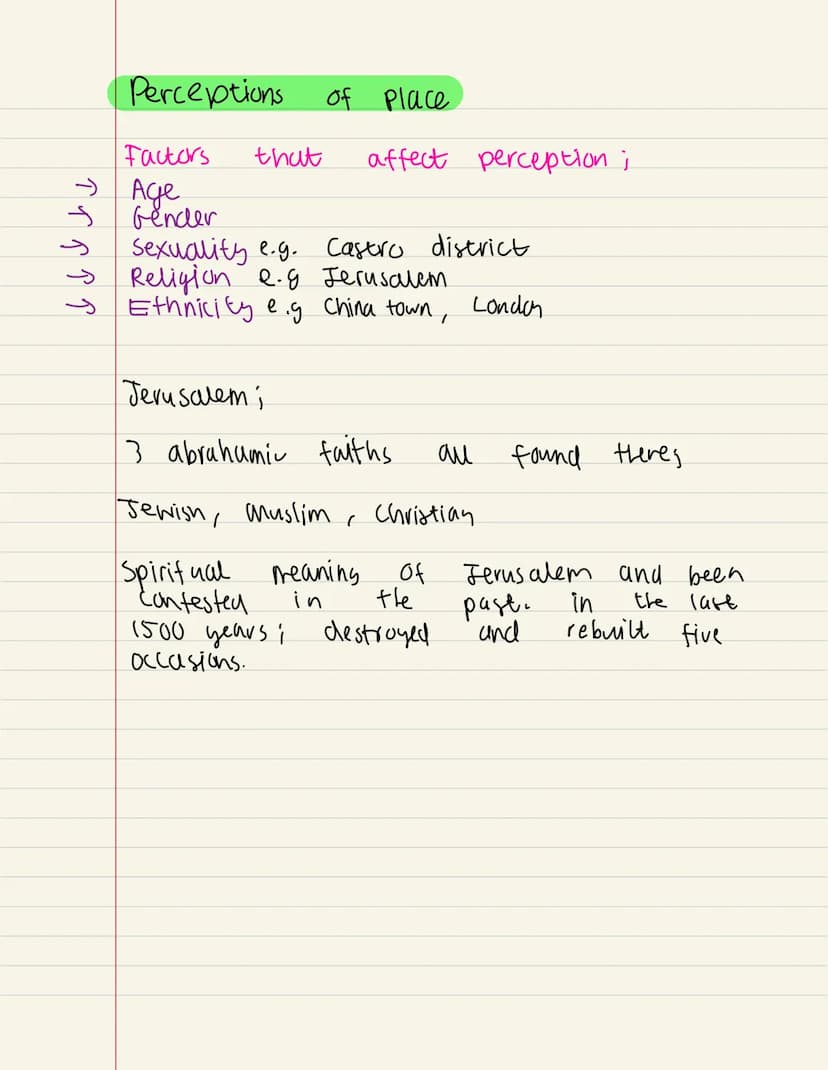 Perceptions of place
Factors that affect perception ;
→ Age
→ Gender
→ Sexuality e.g. Castro district
→ Religion e.g Jerusalem
→ Ethnicity e.g China town, London
Jerusalem ;
3 abrahamic faiths all found there;
Jewish, Muslim, Christian
Spiritual meaning of Jerusalem and been
contested in the past. in the last
1500 years ; destroyed and rebuilt five
occasions.